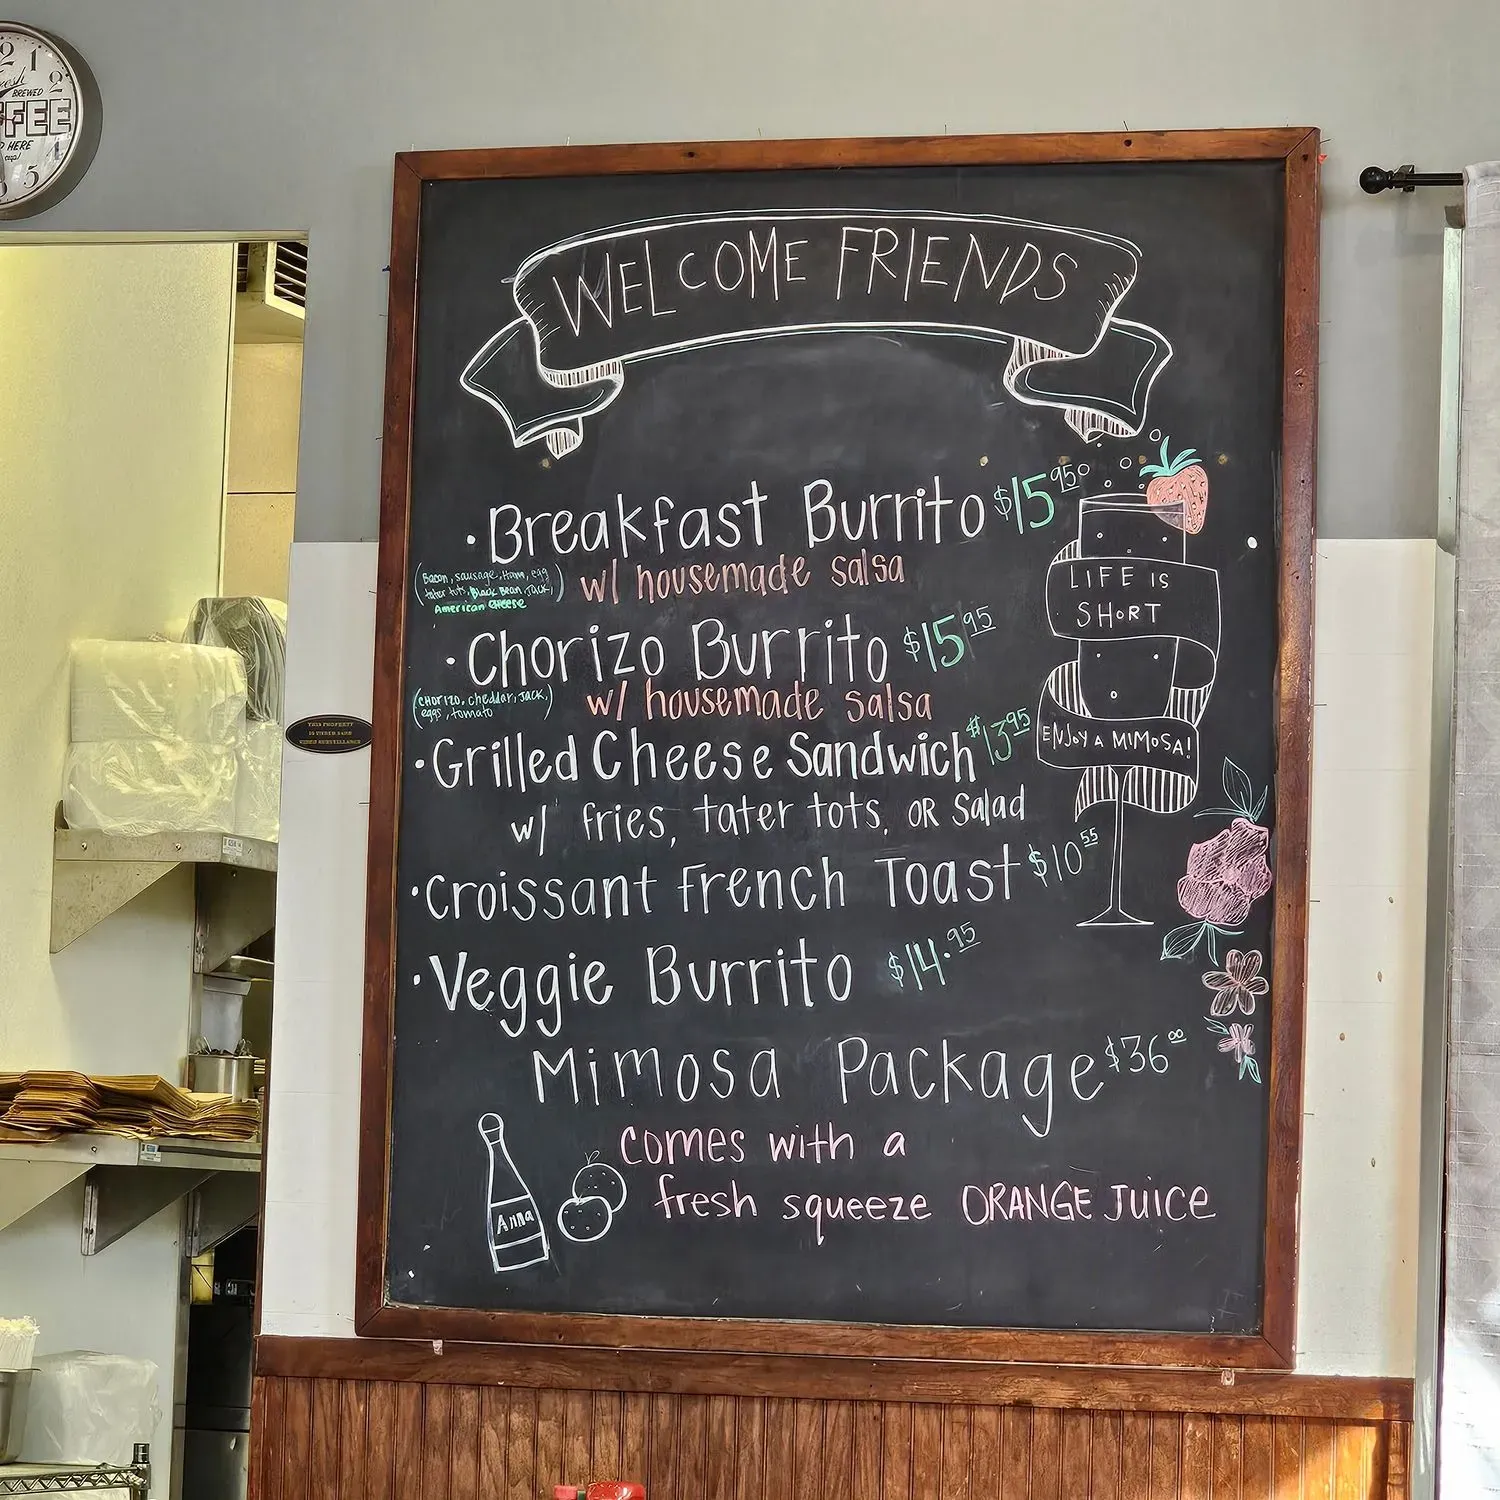 2 1
2
fresh
BREWED
FFEE
HERE
5
WELCOME FRIENDS
· Breakfast Burrito $15.95
(Bacon, sausage, Ham, egg
tater tots, Black Bean, Jack,
American cheese)
w/ housemade salsa
· Chorizo Burrito $15.95
(CHORIZO, cheddar, JACK,
eggs, tomato)
w/ housemade salsa
· Grilled Cheese Sandwich $13.95
w/ fries, tater tots, OR Salad
· Croissant French Toast $10.55
· Veggie Burrito $14.95
Mimosa Package $36.00
comes with a
fresh squeeze ORANGE JUICE
Anna
LIFE IS
SHORT
ENJOY A MIMOSA!
THIS PROPERTY
IS UNDER 24HR
VIDEO SURVEILLANCE